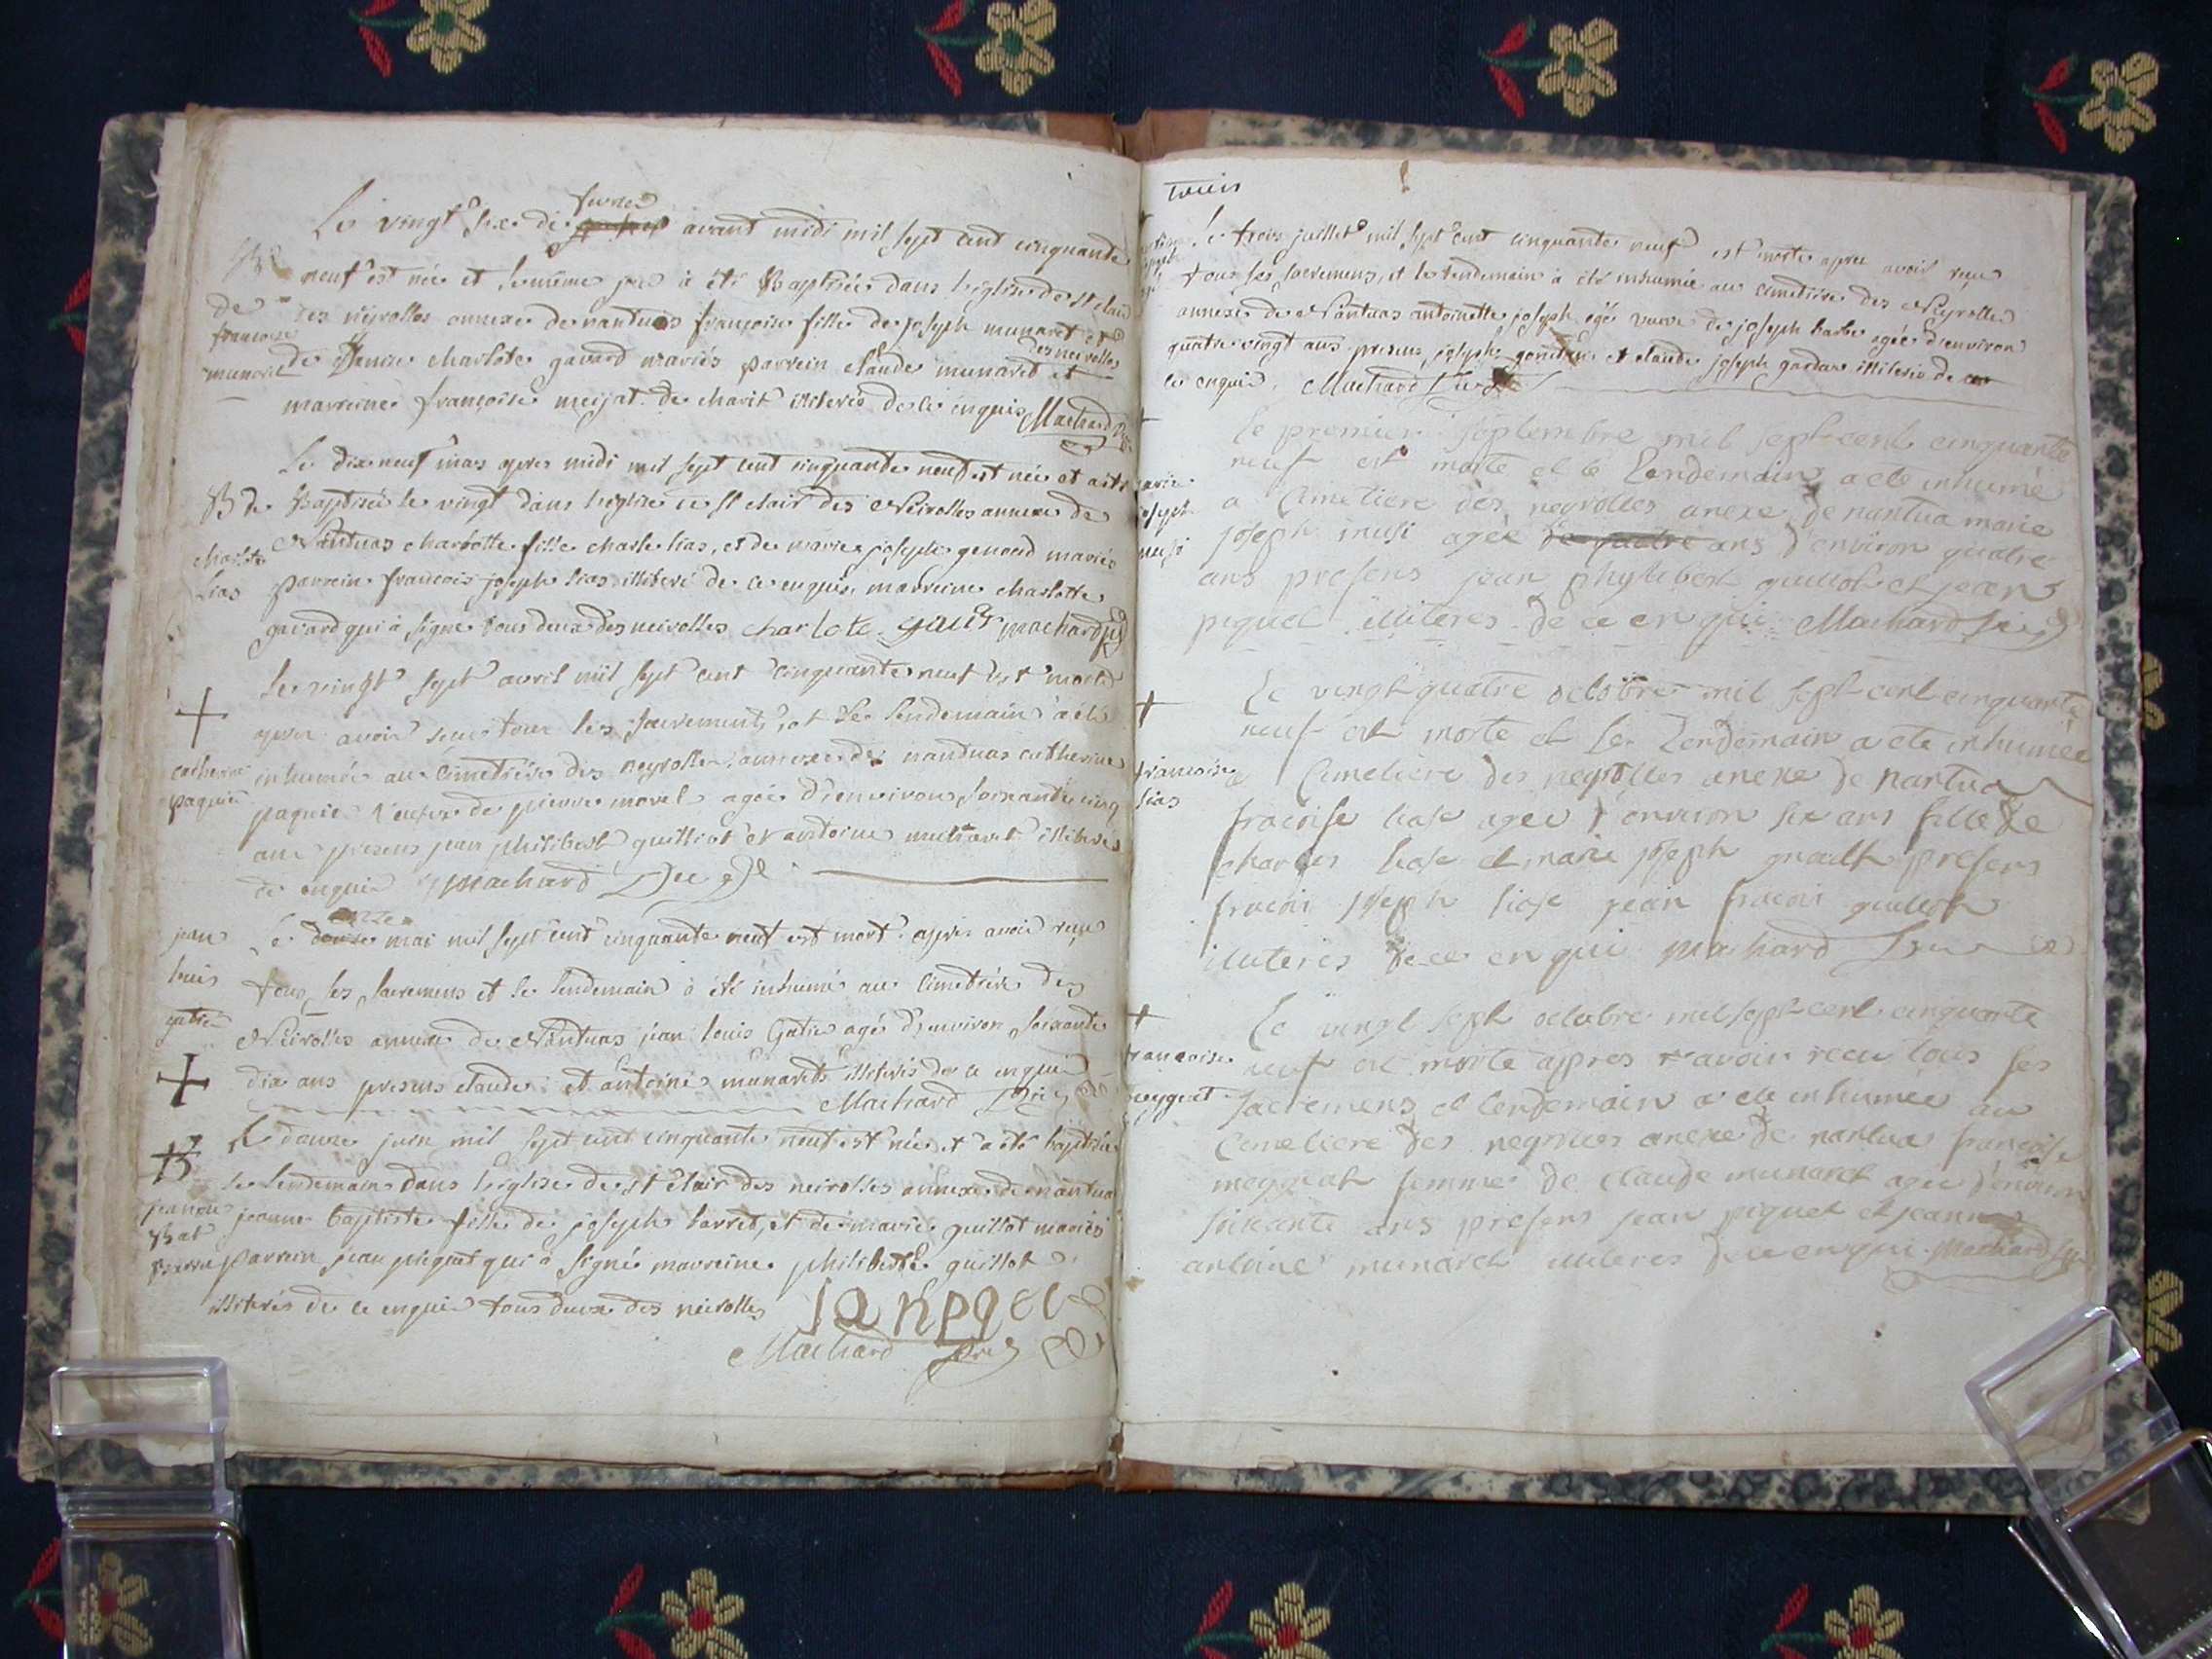 fevrier
Le vingt six de avant midi mil sept cent cinquante
neuf est née et le même jour à été Baptisée dans l'eglise de st clair
des neyrolles annexe de nantuas françoise fille de joseph munaret et
de charlote gavard mariés parrein claude munaret et
des neirolles
marreine françoise meijat de charix illiterés de ce enquis Machard
B de
francoise
munaret
Le dix neuf mars apres midi mil sept cent cinquante neuf est née et a été
Baptisée le vingt dans l'eglise de st clair des Neirolles annexe de
Nantuas charlotte fille charle lias, et de marie joseph genoud mariés
parrein francois joseph lias illiteré de ce enquis, marreine charlotte
gavard qui à signé tous deux des neirolles charlote Machard
B de
charlote
Lias
Le vingt sept avril mil sept cent cinquante neuf est morte
apres avoir reçu tous les sacrements, et le lendemain a été
inhumée au cimetière des neyrolles annexe de nantuas catherine
paquie veuve de pierre morel agée d'environ soixante cinq
ans presens jean philibert guilliot et antoine munaret illiterés
de enquis Machard
catherine
paquie
onze
Le mai mil sept cent cinquante neuf est mort apres avoir reçu
tous les sacremens et le lendemain à été inhumé au cimetière des
Neirolles annexe de Nantuas jean louis Gatie agé d'environ soixante
dix ans presens claude et antoine munarets illiterés de ce enquis
Machard
jean
louis
gatie
Le douze juin mil sept cent cinquante neuf est née et a été baptisée
le lendemain dans l'eglise de st clair des neirolles annexe de nantua
jeanne baptiste fille de joseph barret, et de marie guillot mariés
parrein jean piquet qui à signé marreine philiberte guillot
illiterés de ce enquis tous deux des neirolles
Machard
B
trois
Le trois juillet mil sept cent cinquante neuf est morte apres avoir reçu
tous les sacremens, et le lendemain à été inhumée au cimetière des Neyrolles
annexe de Nantuas antoinette joseph veuve de joseph barbe agée d'environ
quatre vingt ans presens joseph et claude joseph illiterés de
ce enquis. Machard
Le premier septembre mil sept cent cinquante
neuf est morte et le lendemain a ete inhumé
a Cimetiere des neyrolles anexe de nantua marie
joseph musi agée de quatre ans d'environ quatre
ans presens jean phylibert guillot et jean
piquet illiteres de ce en qui Machard
marie
joseph
musi
Le vingt quatre octobre mil sept cent cinquante
neuf est morte et le lendemain a ete inhumée
a Cimetiere des neyrolles anexe de nantua
fracoise liase agee d'environ six ans fille de
charles liase et marie joseph presens
fracoi joseph liase jean fracoi guillot
illiteres de ce en qui Machard
francoise
lias
Le vingt sept octobre mil sept cent cinquante
neuf est morte appres avoir recu tous ses
sacremens et lendemain a ete inhumée au
Cimetiere des neyrolles anexe de nantua francoise
meygiat femme de claude munaret agee d'environ
soixante ans presens jean piquet et jean
antoine munaret illiteres de ce en qui Machard
francoise